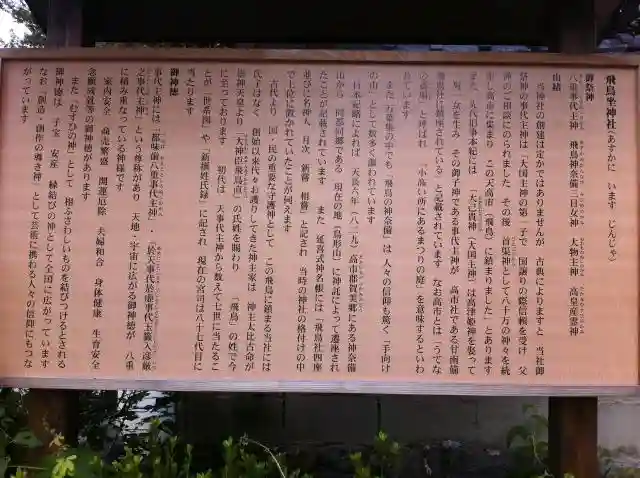 飛鳥坐神社（あすかに います じんじゃ）
御祭神
八重事代主神 飛鳥神奈備三日女神 大物主神 高皇産霊神
由緒
当神社の創建は定かではありませんが 古典によりますと 当社御
祭神の事代主神は「大国主神の第一子で 国譲りの際信頼を受け 父
神のご相談にのられました その後 首渠神として八十万の神々を統
率し高市に集まり この天高市（飛鳥）に鎮まりました」とあります
また 先代旧事本紀には「大己貴神（大国主神）は高津姫神を娶って
一男一女を生み その御子神である事代主神が 高市社である甘南備
飛鳥社に鎮座されている」と記載されています なお高市とは「うてな
の斎場」と呼ばれ 「小高い所にあるまつりの庭」を意味するといわ
れています
また 万葉集の中でも「飛鳥の神奈備」は 人々の信仰も篤く「手向け
の山」として数多く謳われています
日本紀略によれば 天長六年（八二九）高市郡賀美郷にある神奈備
山から 同郡同郷である 現在の地（鳥形山）に神託によって遷座され
たことが記載されています また 延喜式神名帳には「飛鳥社四座
並びに名神大 月次 新嘗 相嘗」と記され 当時の神社の格付けの中
で上位に置かれていたことが伺えます
古代より 国・民の重要な守護神として この飛鳥に鎮まる当社には
氏子はなく 創始以来代々お護りしてきた神主家は 神主太比古命が
崇神天皇より「大神臣飛鳥直」の氏姓を賜わり 「飛鳥」の姓で今
に至っております 初代は 天事代主神から数えて七世に当たるこ
とが「世系図」や「新撰姓氏録」に記され 現在の宮司は八十七代目に
当たります
御神徳
事代主神には「都味歯八重事代主神」・「於天事代於虚事代玉籖入彦厳
之事代主神」という尊称があり 天地・宇宙に広がる御神徳が 八重
に積み重なっている神様です
家内安全 商売繁盛 開運厄除 夫婦和合 身体健康 生育安全
念願成就等の御神徳があります
また「むすひの神」として 相ふさわしいものを結びつけるとされる
御神徳は 子宝 安産 縁結びの神として全国に広がっています
なお「創造・創作の導き神」として芸術に携わる人々の信仰にもつな
がっています